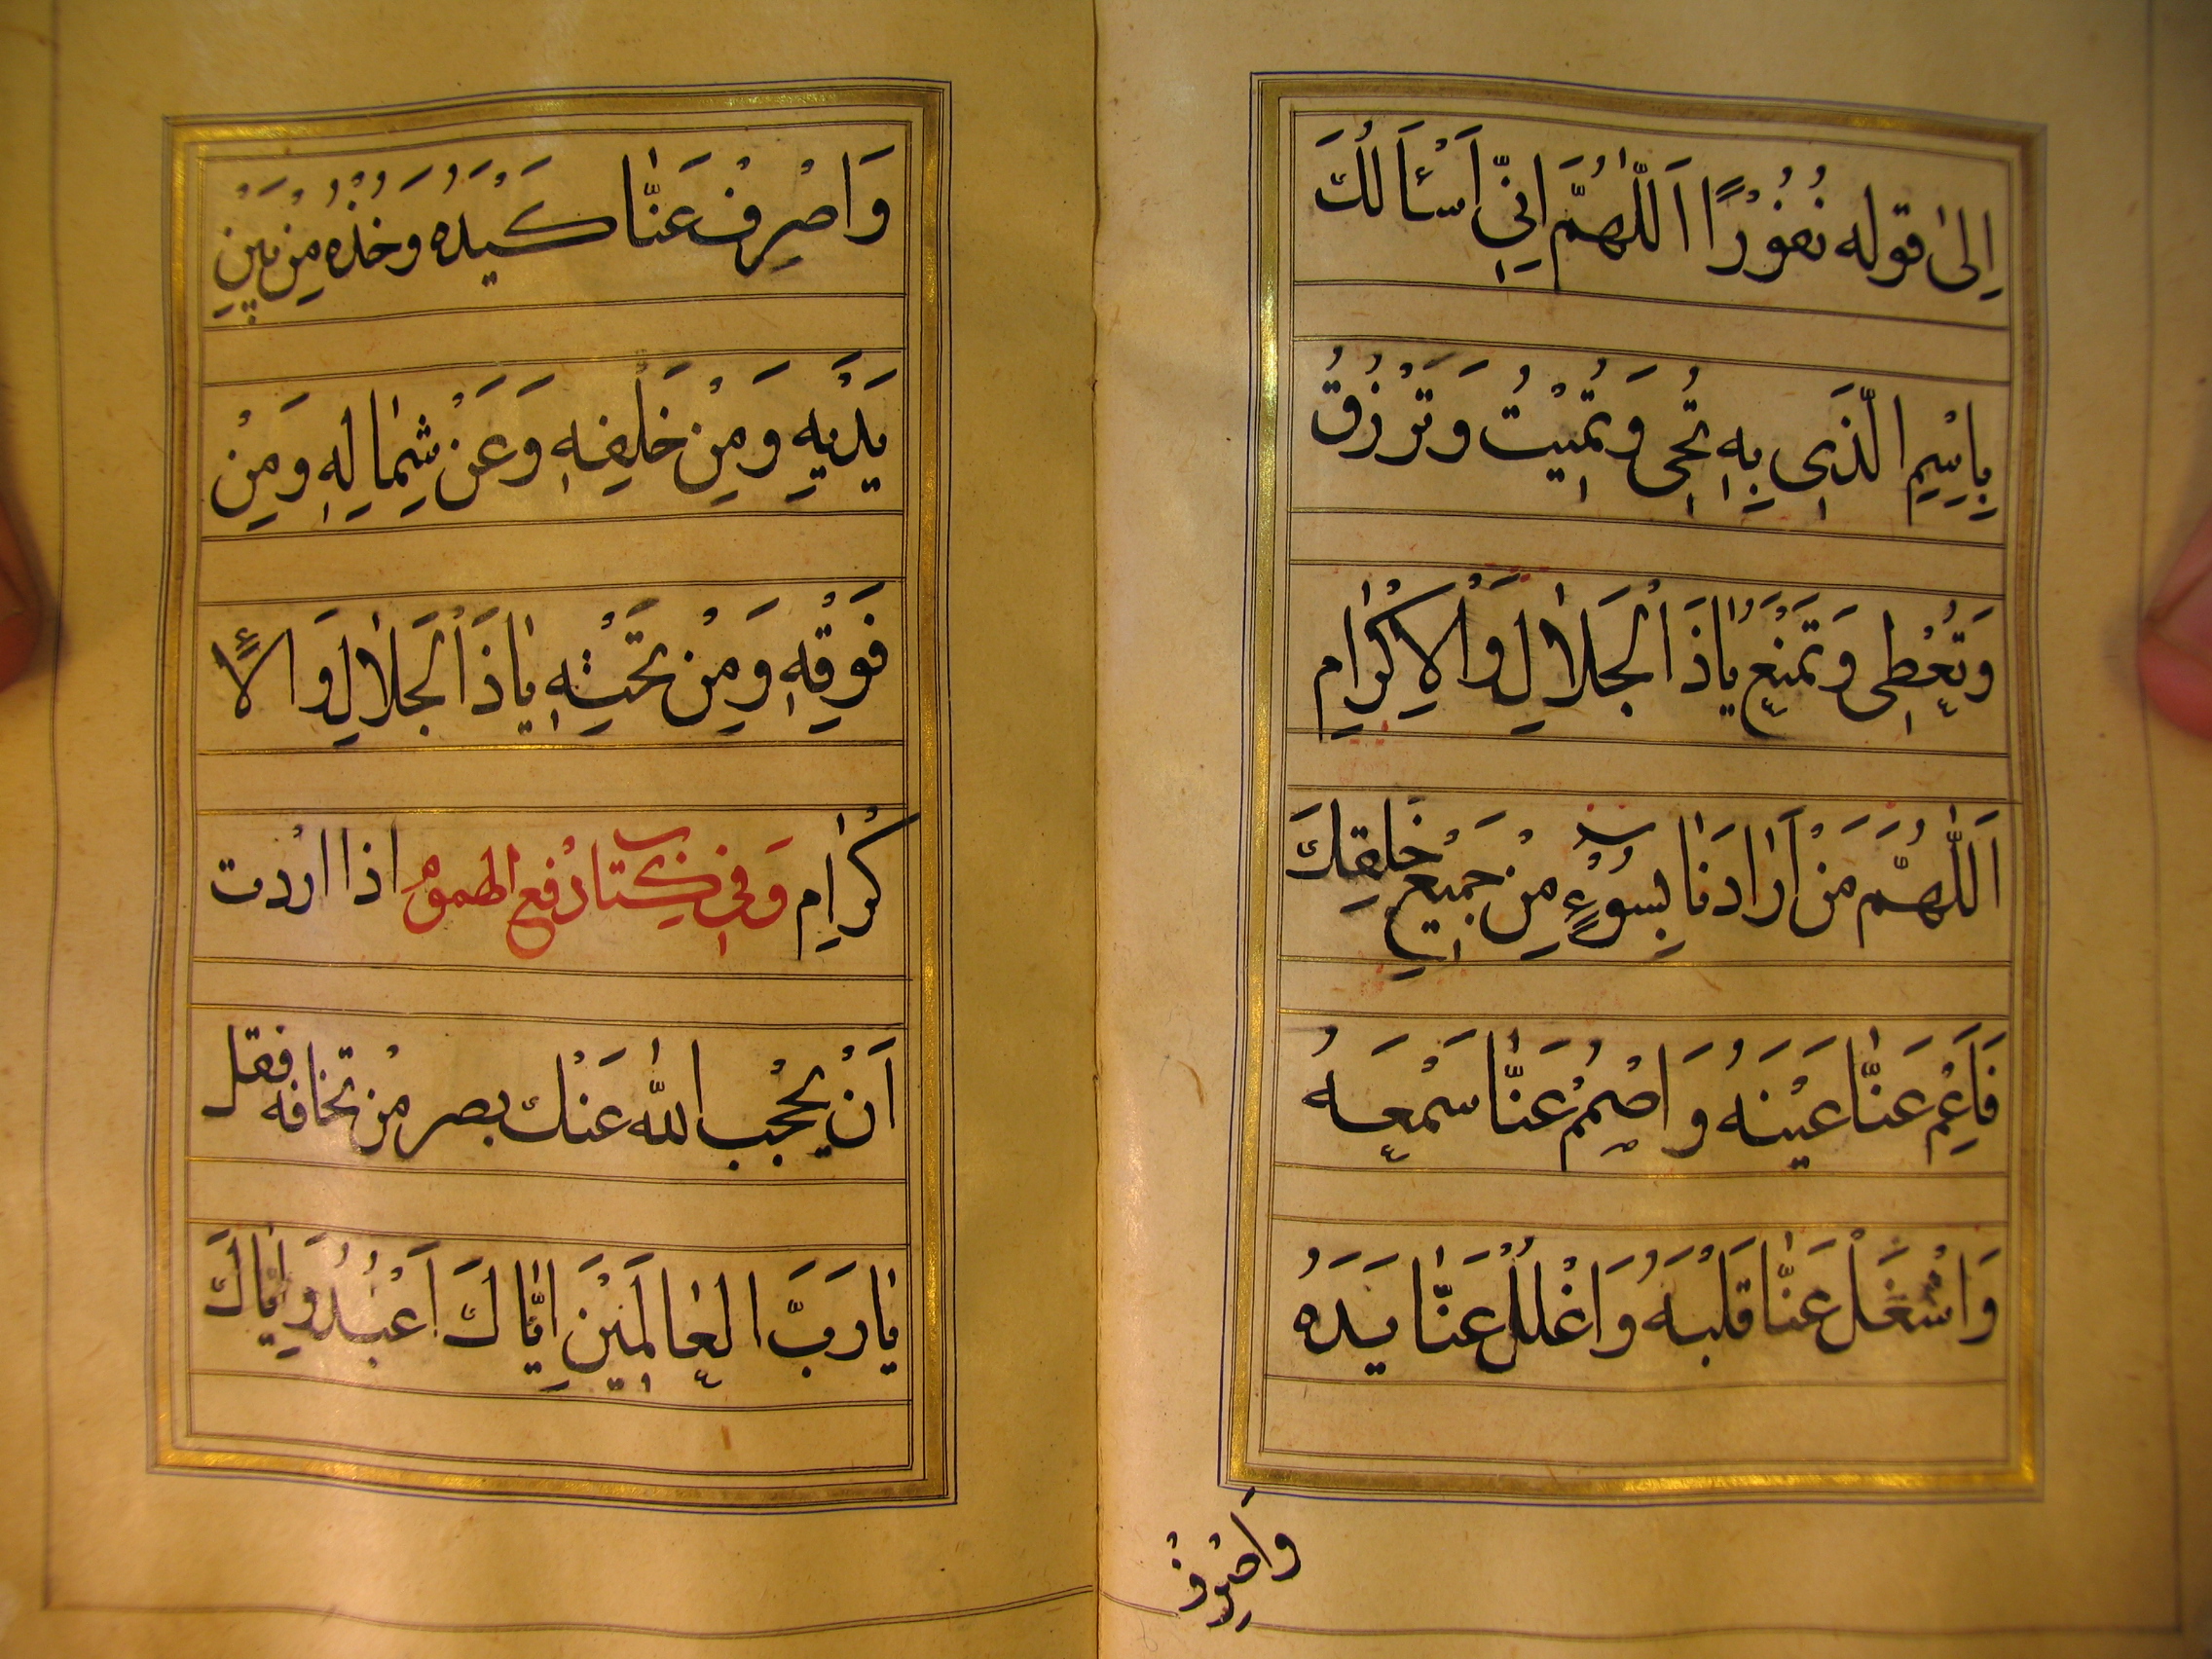 اِلىٰ قوله نُفُوْرًا اَللّٰهُمَّ اِنّٖي اَسْئَالُكَ
بِاسْمِ الَّذٖى بِهٖ تُحْيٖ وَتُمٖيْتُ وَتَرْزُقُ
وَتُعْطٖى وَتَمْنَعُ يٰا ذَا الْجَلاٰلِ وَالْاِكْرٰامِ
اَللّٰهُمَّ مَنْ اَرٰادَنٰا بِسُوْءٍ مِنْ جَمٖيْعِ خَلْقِكَ
فَاَعْمِ عَنّٰا عَيْنَهُ وَاصْمُمْ عَنّٰا سَمْعَهُ
وَاشْغَلْ عَنّٰا قَلْبَهُ وَاغْلُلْ عَنّٰا يَدَهُ
وَاصْرِفْ
وَاصْرِفْ عَنّٰا كَيْدَهُ وَخُذْهُ مِنْ بَيْنِ
يَدَيْهِ وَمِنْ خَلْفِهٖ وَعَنْ شِمٰالِهٖ وَمِنْ
فَوْقِهٖ وَمِنْ تَحْتِهٖ يٰا ذَا الْجَلاٰلِ وَالْاِ
كْرٰامِ وَفٖي كِتاب رفع الهموم اذا اردت
اَنْ يَحْجُبَ اللّٰه عَنْك بصر مَنْ تخافه فقل
يٰا رَبَّ الْعٰالَمٖيْنَ اِيّٰاكَ اَعْبُدُ وَاِيّٰاكَ